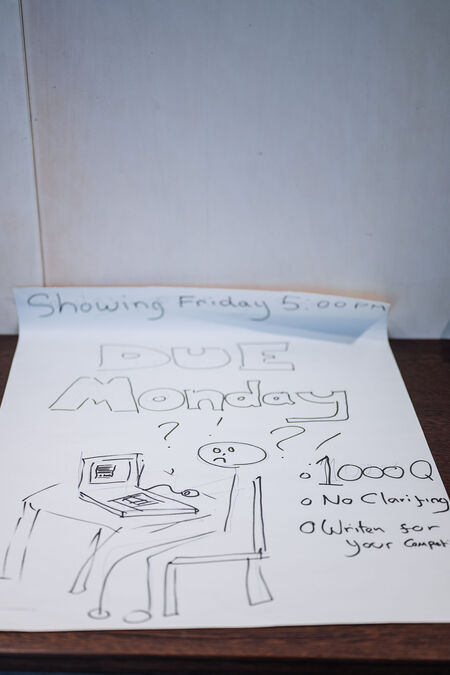 Showing Friday 5:00PM
DUE
Monday
? ! ? /
1000Q
No Clarifing
Writen for
your